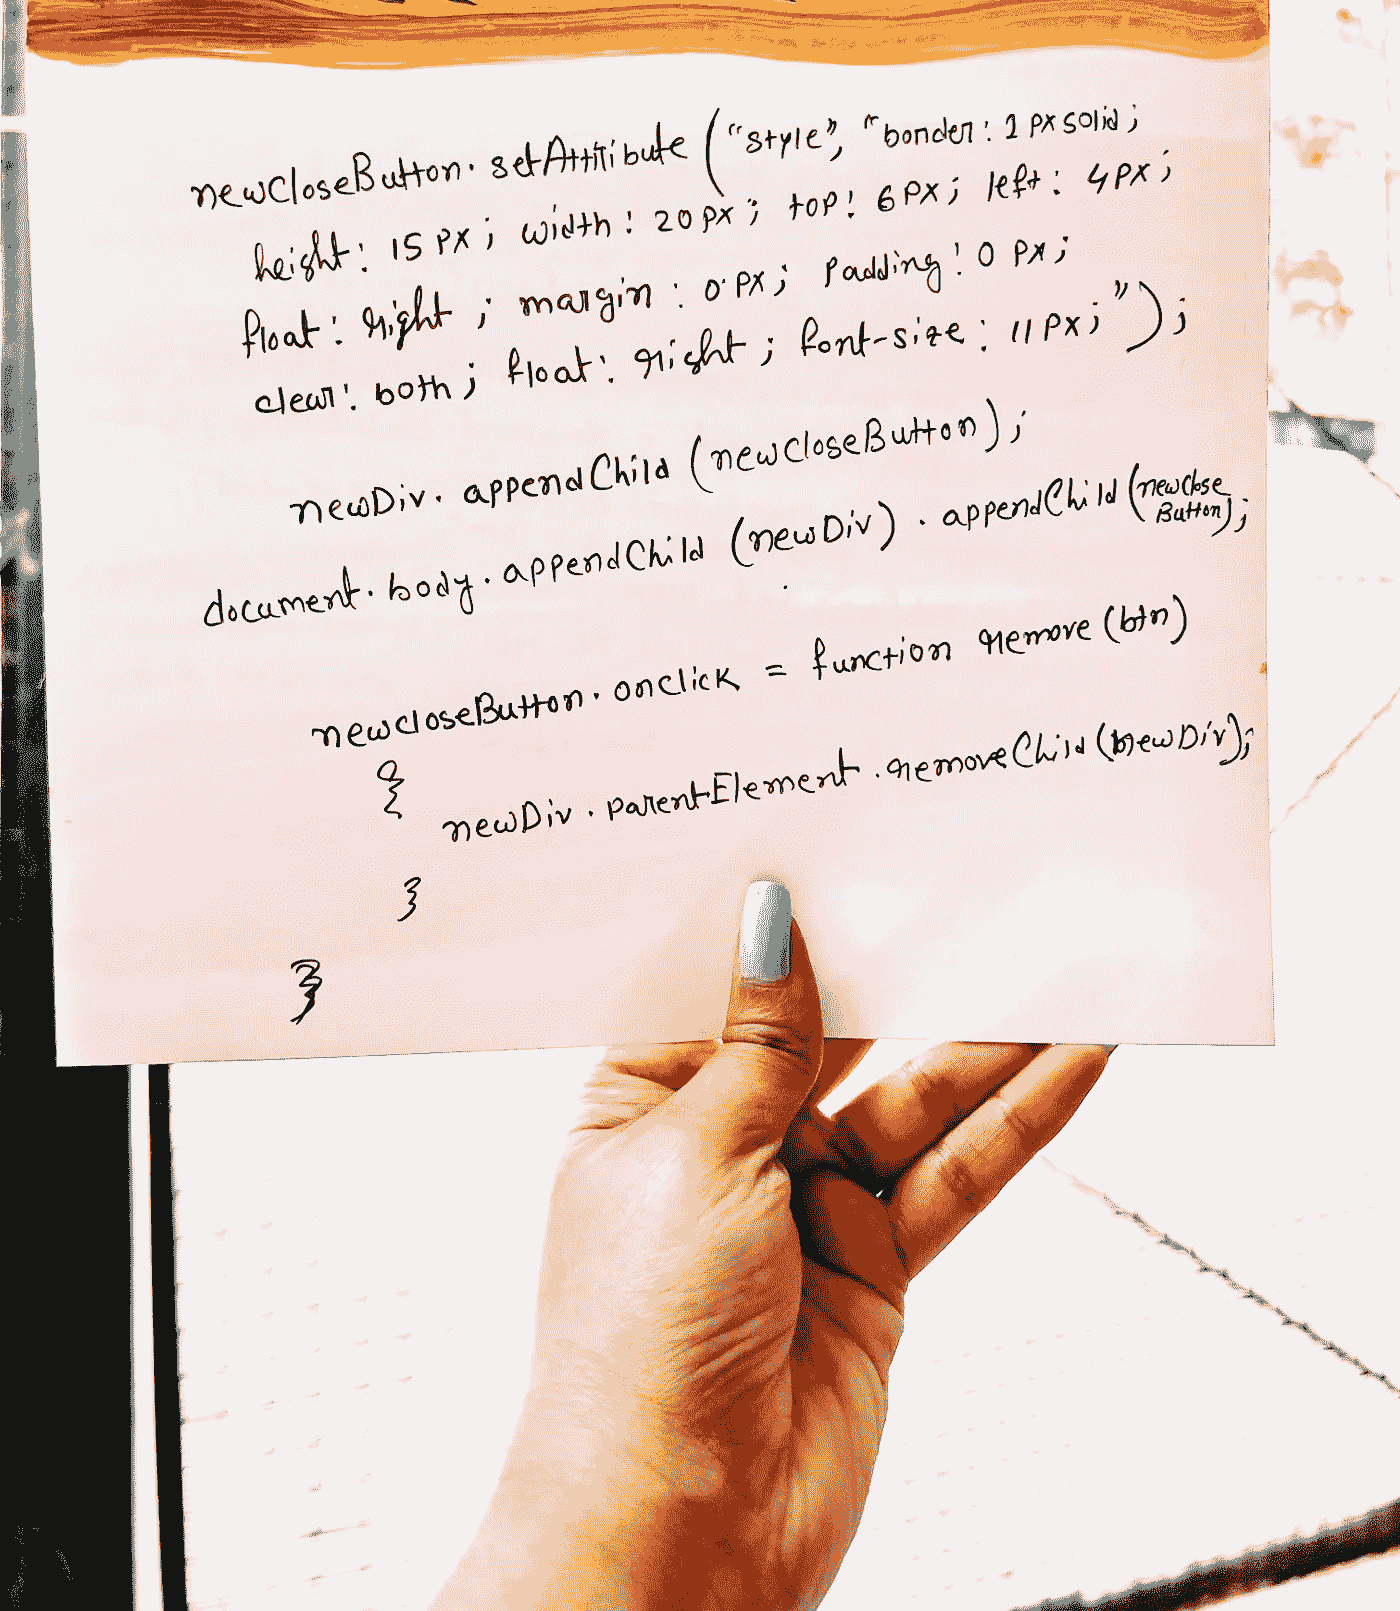 newCloseButton.setAttribute("style", "border: 1px solid;
height: 15px; width: 20px; top: 6px; left: 4px;
float: right; margin: 0px; padding: 0px;
clear: both; float: right; font-size: 11px;");
newDiv.appendChild(newcloseButton);
document.body.appendChild(newDiv).appendChild(newclose
Button);
newcloseButton.onclick = function remove(btn)
{
newDiv.parentElement.removeChild(newDiv);
}
}